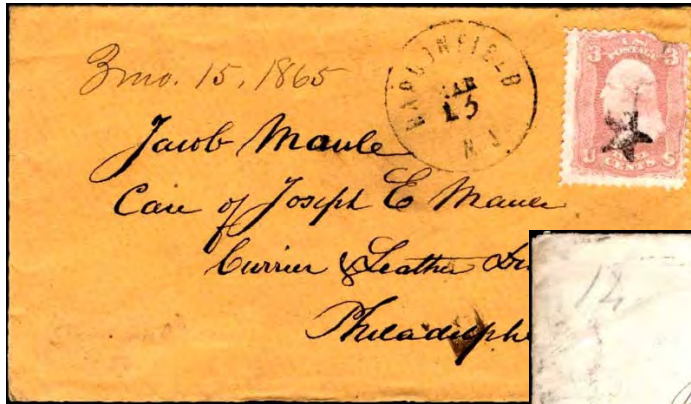 3mo. 15, 1865
HADDONFIELD
MAR
15
N.J.
3 U.S. 3
POSTAGE
U CENTS S
Jacob Maule
Care of Joseph E Maule
Currier & Leather
Philadelph